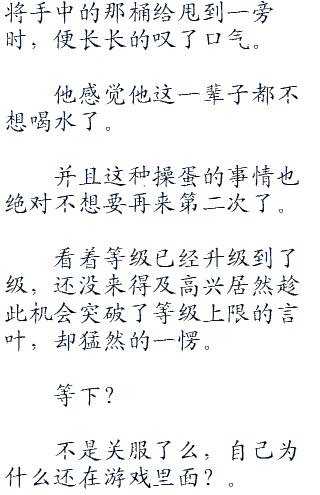 将手中的那桶给甩到一旁
时，便长长的叹了口气。
他感觉他这一辈子都不
想喝水了。
并且这种操蛋的事情也
绝对不想要再来第二次了。
看着等级已经升级到了
级，还没来得及高兴居然趁
此机会突破了等级上限的言
叶，却猛然的一愣。
等下？
不是关服了么，自己为
什么还在游戏里面？。